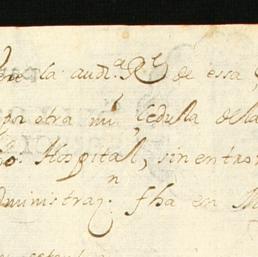 la aud.ᵃ Rˡ de essa
por otra mi Cedula dela
Hospital, sin entra
dministraⁿ. fha en M